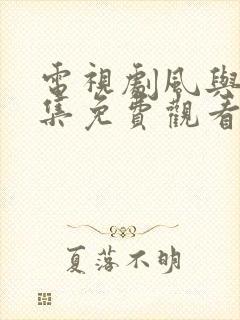 電視劇風與
集免費觀看
夏落不明